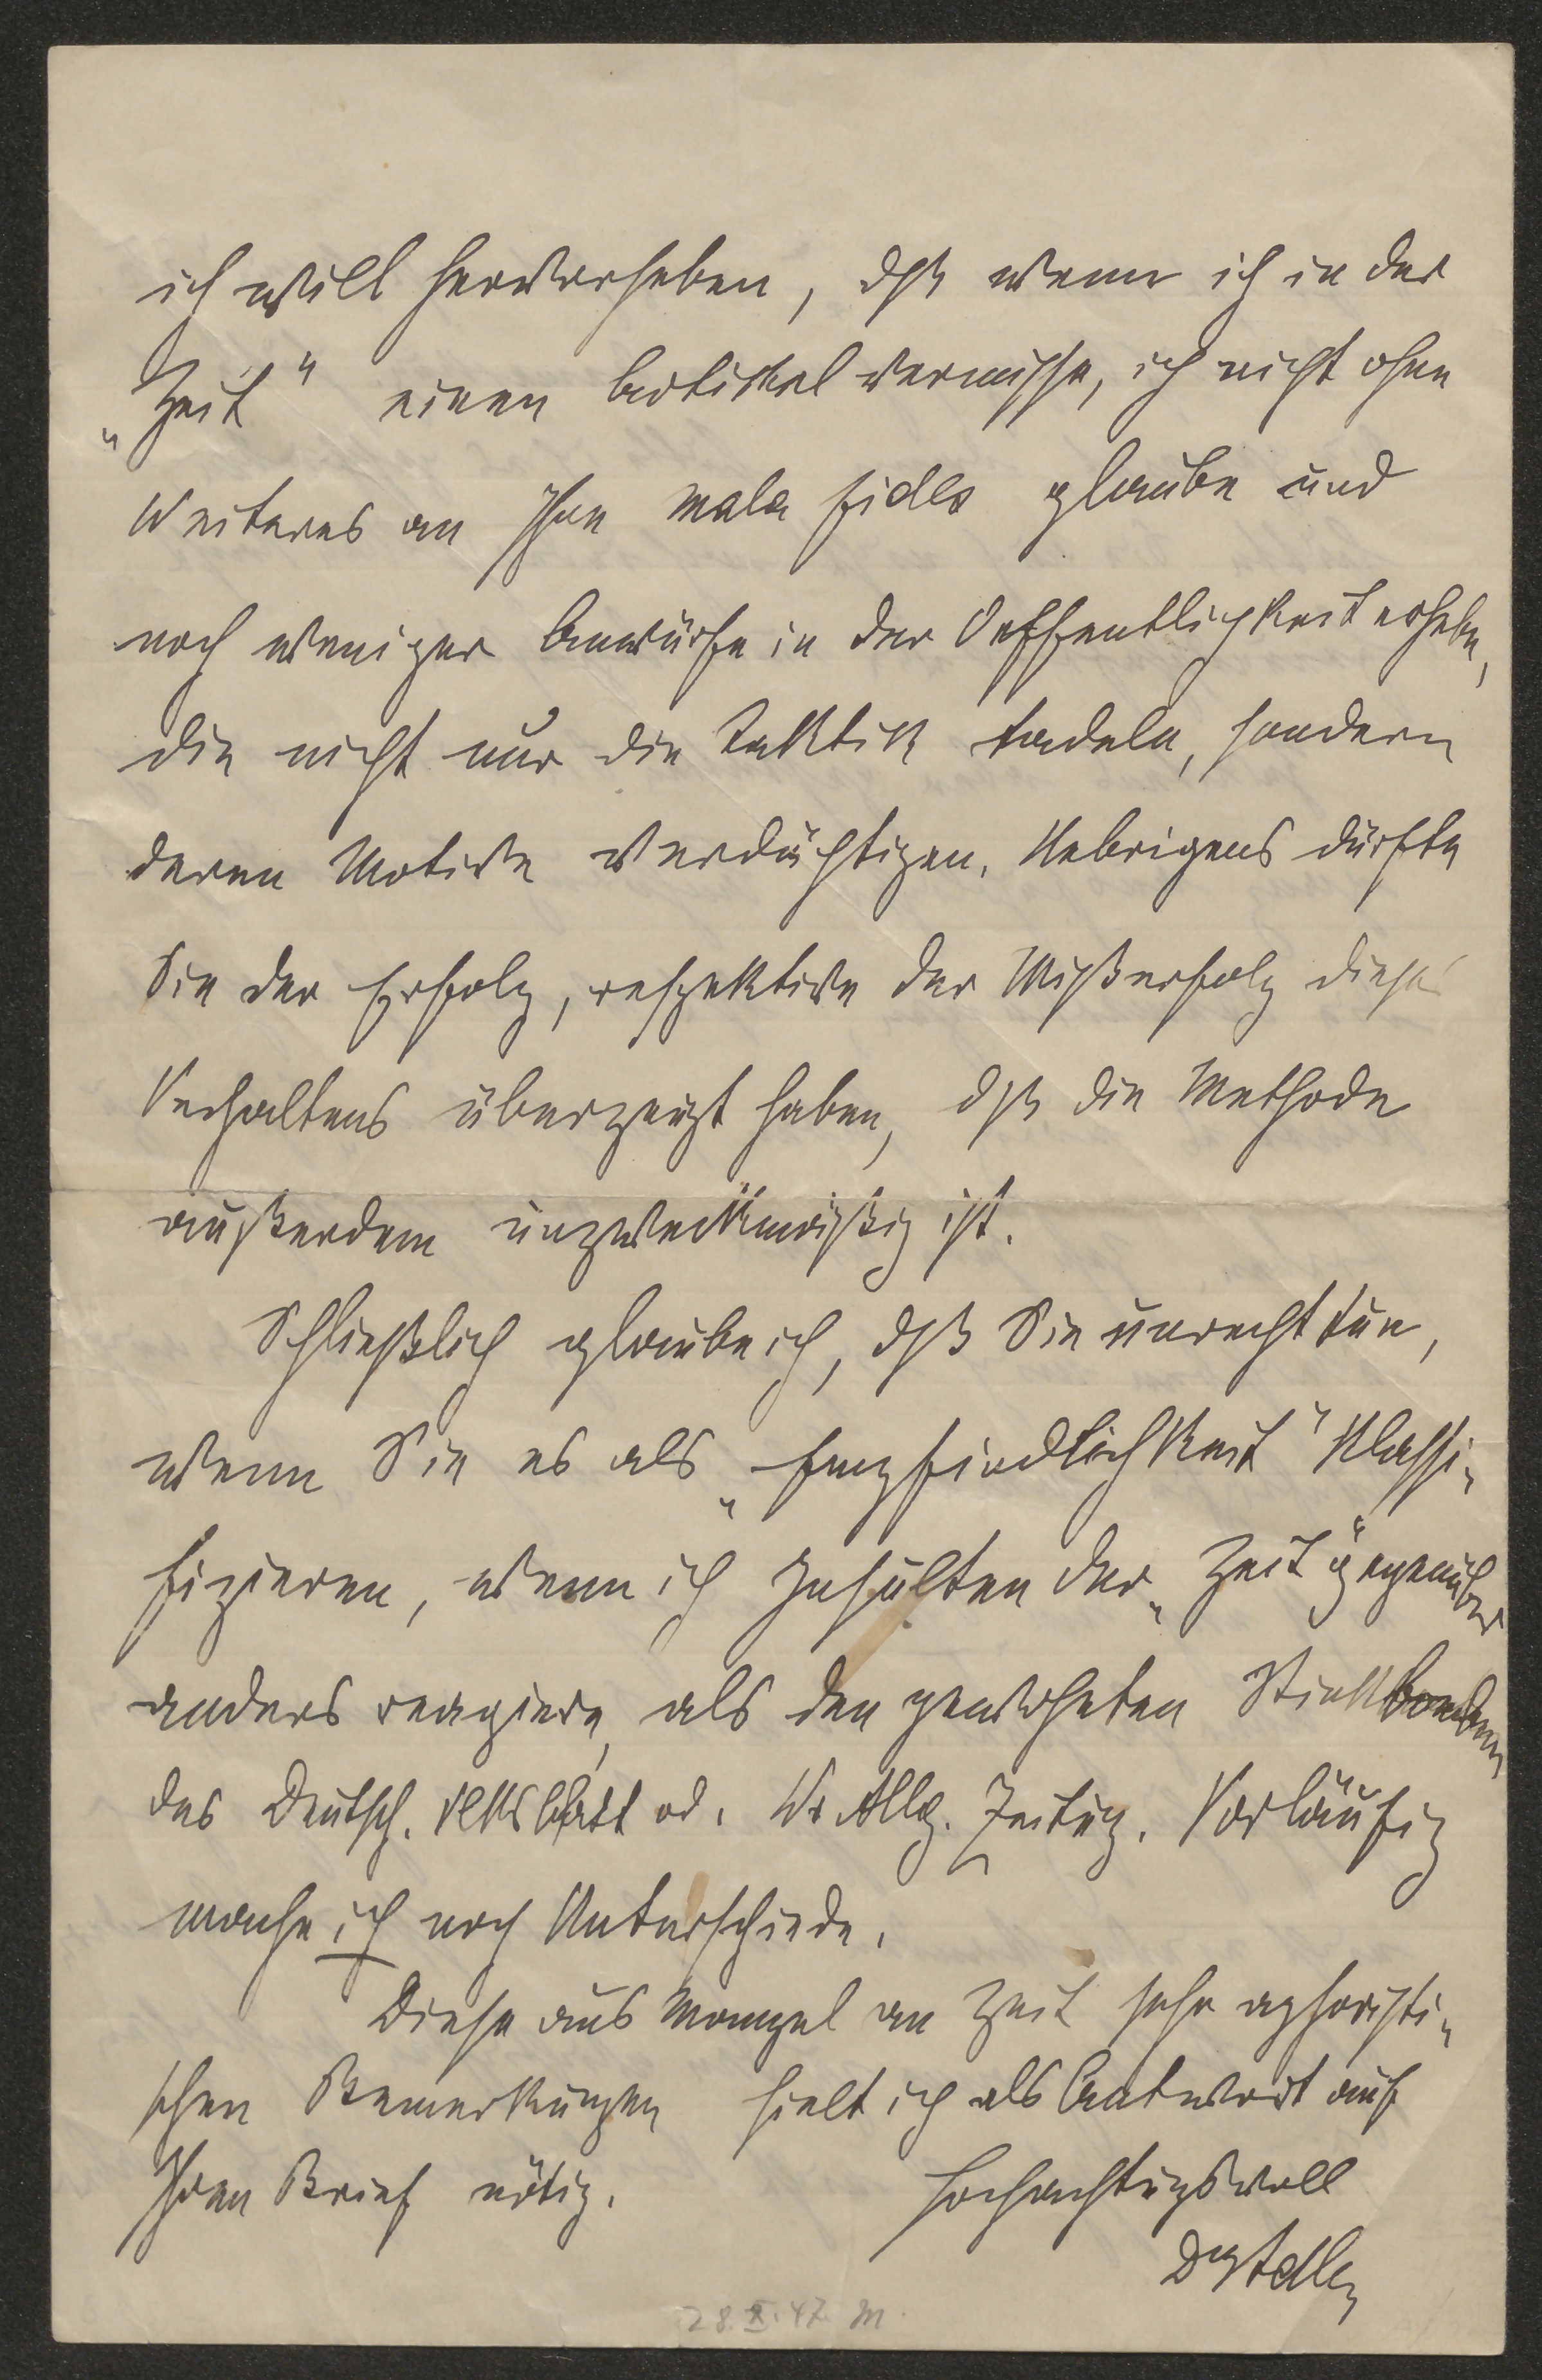 ich will hervorheben, dß wenn ich in der
„Zeit" einen Artikel vermisse, ich nicht ohne
Weiteres an Ihre mala fides glaube und
noch weniger Anwürfe in der Oeffentlichkeit erhebe,
die nicht nur die Taktik tadeln, sondern
deren Motive verdächtigen. Uebrigens dürfte
Sie der Erfolg, respektive der Mißerfolg dieses
Verhaltens überzeugt haben, dß die Methode
außerdem unzweckmäßig ist.
Schließlich glaube ich, dß Sie unrecht tun,
wenn Sie es als „Empfindlichkeit" klassi-
fizieren, wenn ich Insulten der „Zeit" gegenüber
anders reagiere, als den gewohnten Stinkbomben
des Deutsch. Vlksblatt od. Wr Allg. Zeitug. Vorläufig
mache ich noch Unterschiede.
Diese aus Mangel an Zeit sehr aphoristi-
schen Bemerkungen hielt ich als Antwort auf
Ihren Brief nötig.
Hochachtungsvoll
DrVAdler
28.X.47. M.